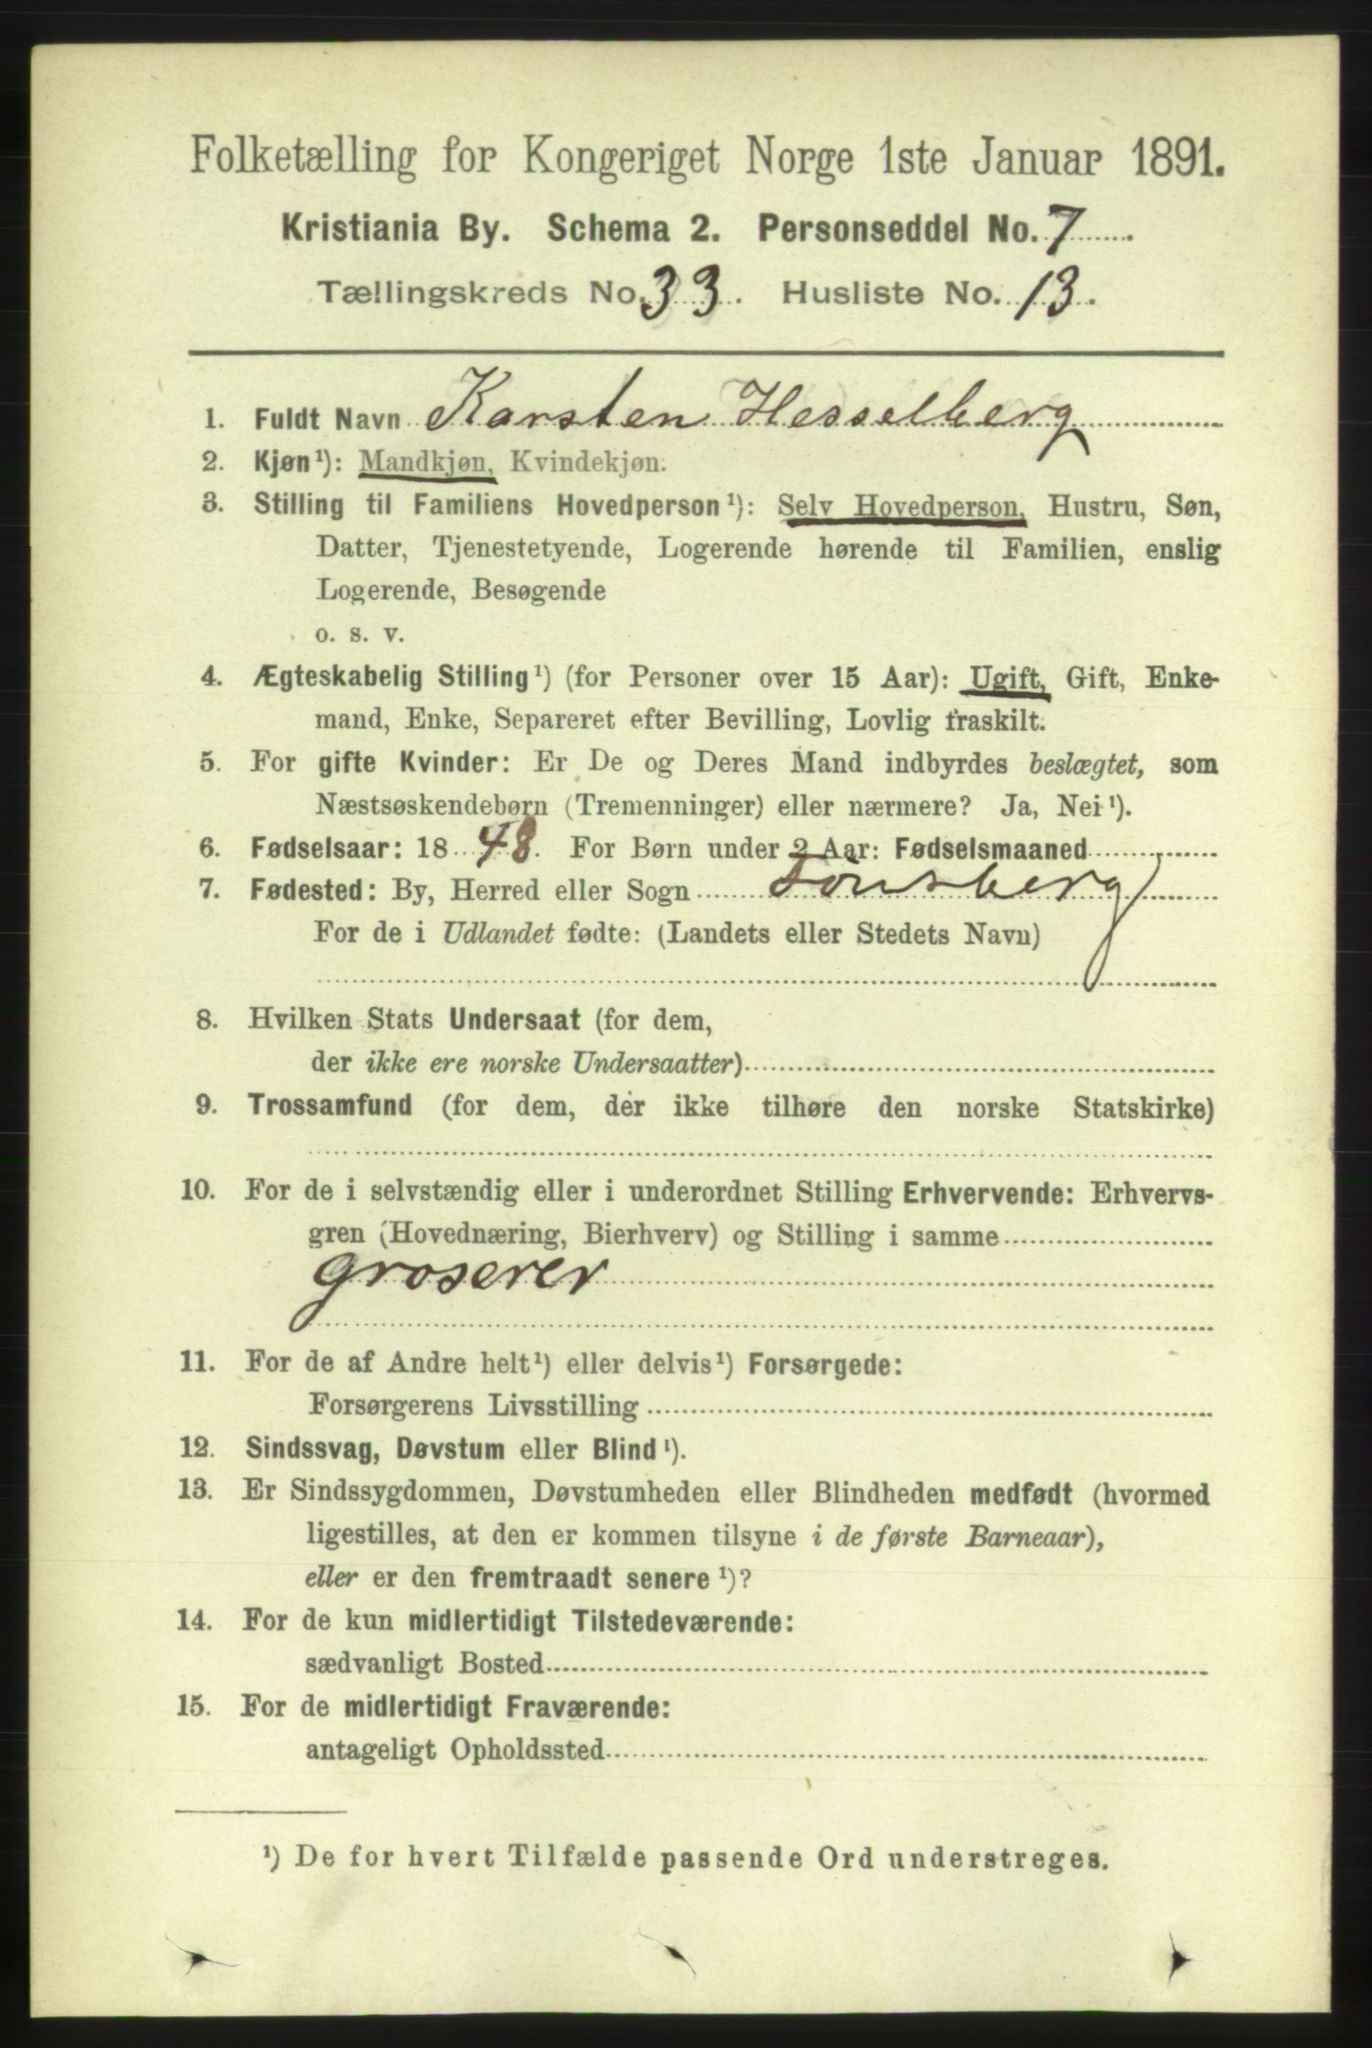 Folketælling for Kongeriget Norge 1ste Januar 1891.
Kristiania By. Schema 2. Personseddel No. 7
Tællingskreds No. 33. Husliste No. 13.
1. Fuldt Navn Karsten Hesselberg
2. Kjøn¹): Mandkjøn, Kvindekjøn.
3. Stilling til Familiens Hovedperson¹): Selv Hovedperson, Hustru, Søn,
Datter, Tjenestetyende, Logerende hørende til Familien, enslig
Logerende, Besøgende
o. s. v.
4. Ægteskabelig Stilling¹) (for Personer over 15 Aar): Ugift, Gift, Enke-
mand, Enke, Separeret efter Bevilling, Lovlig fraskilt.
5. For gifte Kvinder: Er De og Deres Mand indbyrdes beslægtet, som
Næstsøskendebørn (Tremenninger) eller nærmere? Ja, Nei¹).
6. Fødselsaar: 1848. For Børn under 2 Aar: Fødselsmaaned
7. Fødested: By, Herred eller Sogn Tönsberg
For de i Udlandet fødte: (Landets eller Stedets Navn)
8. Hvilken Stats Undersaat (for dem,
der ikke ere norske Undersaatter)
9. Trossamfund (for dem, der ikke tilhøre den norske Statskirke)
10. For de i selvstændig eller i underordnet Stilling Erhvervende: Erhvervs-
gren (Hovednæring, Bierhverv) og Stilling i samme
groserer
11. For de af Andre helt¹) eller delvis¹) Forsørgede:
Forsørgerens Livsstilling
12. Sindssvag, Døvstum eller Blind¹).
13. Er Sindssygdommen, Døvstumheden eller Blindheden medfødt (hvormed
ligestilles, at den er kommen tilsyne i de første Barneaar),
eller er den fremtraadt senere¹)?
14. For de kun midlertidigt Tilstedeværende:
sædvanligt Bosted
15. For de midlertidigt Fraværende:
antageligt Opholdssted
¹) De for hvert Tilfælde passende Ord understreges.